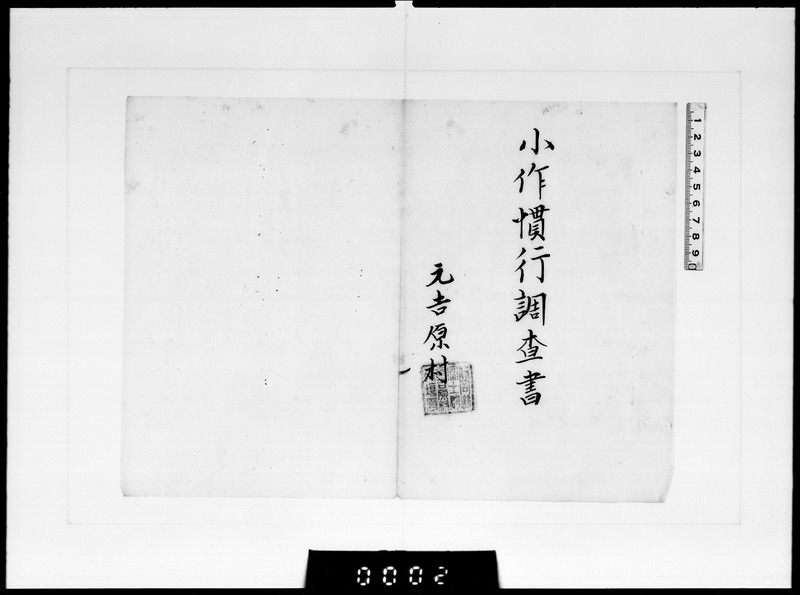 小作慣行調査書
元吉原村
1 2 3 4 5 6 7 8 9
0002